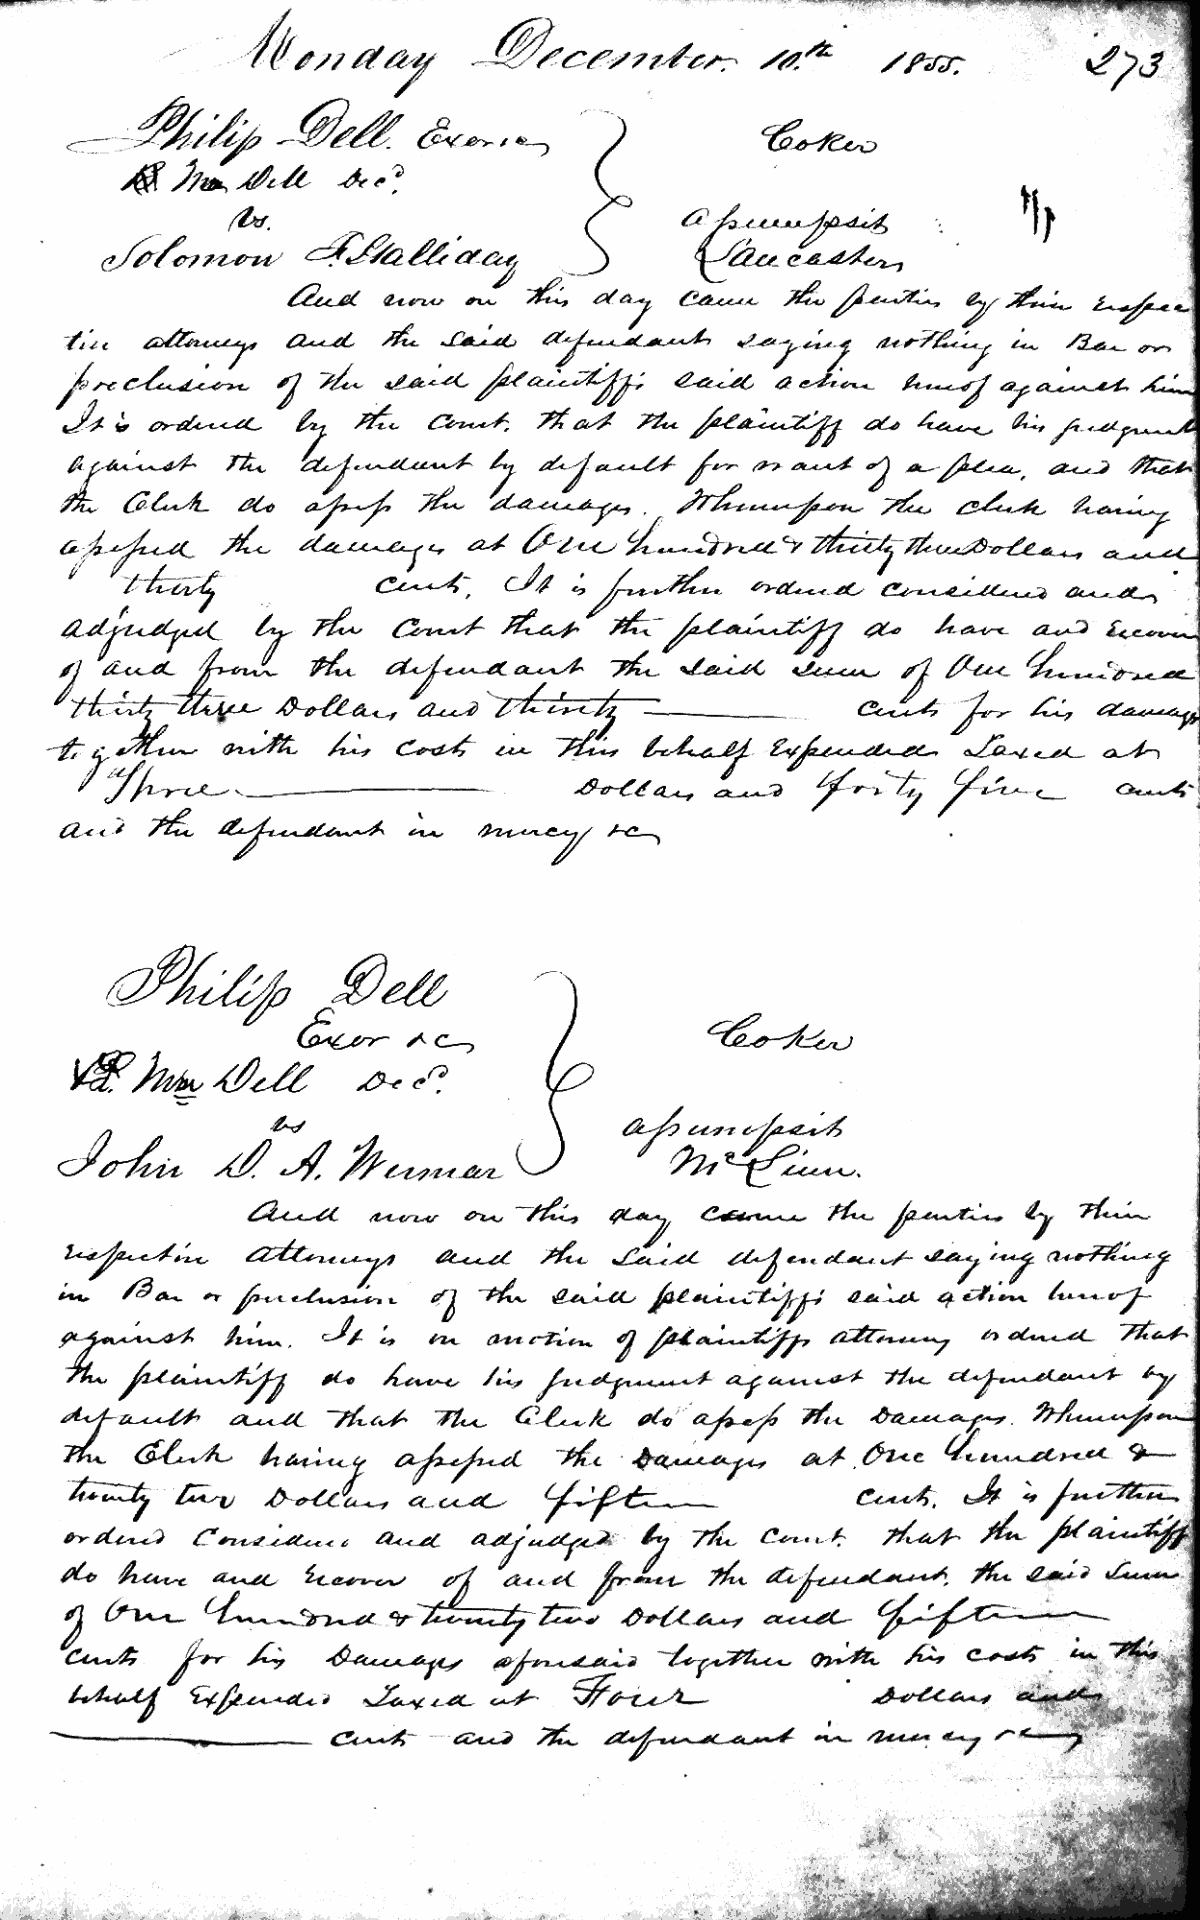 Monday December. 10.th 1855. 273
Philip Dell. Exor &c Coker
Wm Dell Decd.
vs. assumpsit
Solomon F. Halliday Lancaster
And now on this day came the parties by their respec
tive attorneys and the said defendant saying nothing in Bar or
preclusion of the said plaintiffs said action hereof against him
It is ordered by the Court. that the plaintiff do have his judgment
against the defendant by default for want of a plea, and that
the Clerk do assess the damages. Whereupon the clerk having
assessed the damages at One hundred & thirty three Dollars and
thirty cents. It is further ordered considered and
adjudged by the Court that the plaintiff do have and recover
of and from the defendant the said sum of One hundred
thirty three Dollars and thirty cents for his damages
together with his costs in this behalf Expended Taxed at
Three Dollars and forty five cents
and the defendant in mercy &c
Philip Dell
Exor &c Coker
Wm Dell Decd.
vs assumpsit
John D. A. Wermar McLinn.
And now on this day came the parties by their
respective attorneys and the said defendant saying nothing
in Bar or preclusion of the said plaintiffs said action hereof
against him. It is on motion of plaintiffs attorney ordered that
the plaintiff do have his judgment against the defendant by
default and that the Clerk do assess the Damages. Whereupon
the Clerk having assessed the Damages at One hundred &
twenty two Dollars and fifteen cents. It is further
ordered Considered and adjudged by the Court. that the plaintiff
do have and recover of and from the defendant. the said sum
of One hundred & twenty two Dollars and fifteen
cents for his Damages aforesaid together with his costs in this
behalf Expended Taxed at Four Dollars and
cents and the defendant in mercy &c